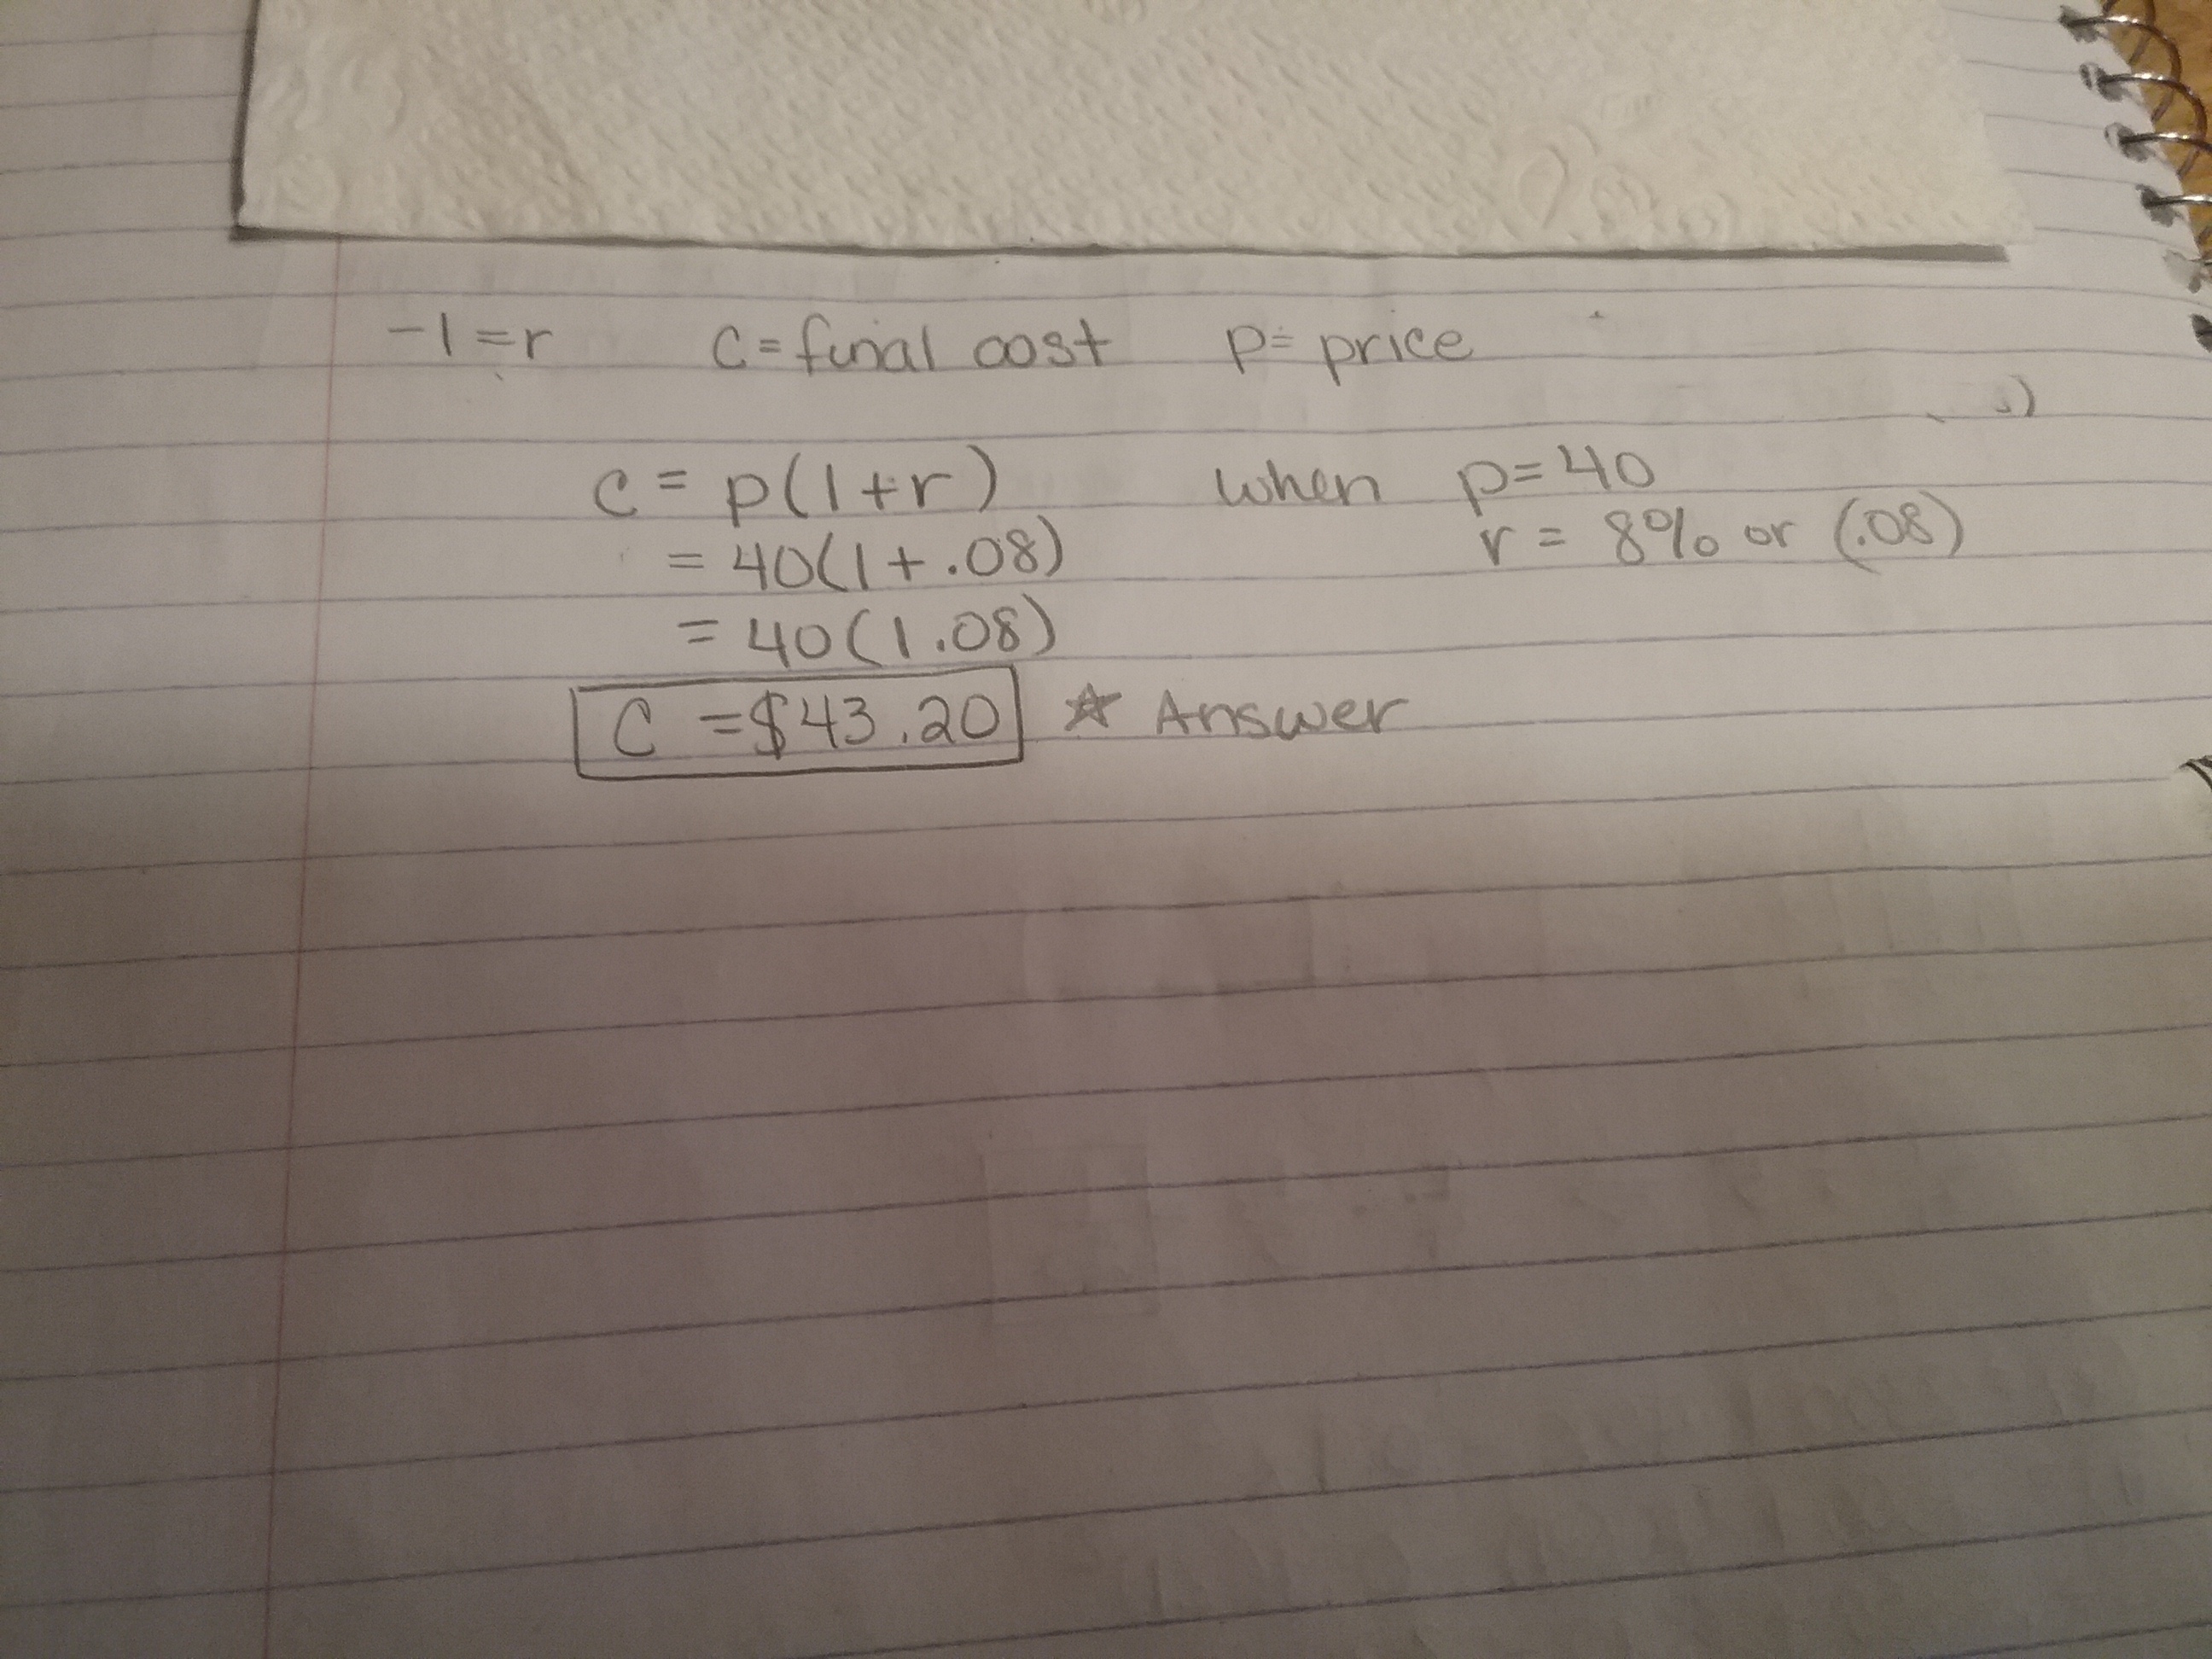 -1=r C=final cost p= price
C = p(1+r) when p=40
= 40(1+.08) r = 8% or (.08)
= 40(1.08)
C =$43.20 ☆ Answer